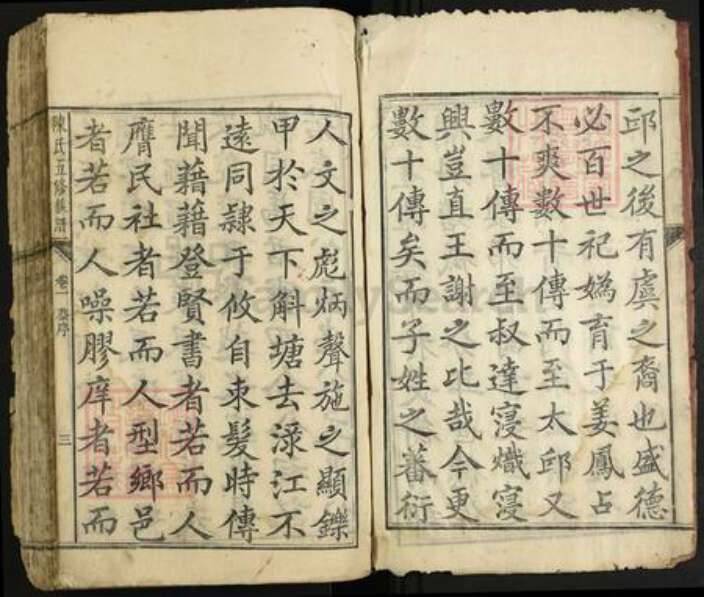 邱之後有虞之裔也盛德
必百世祀媯育于姜鳳占
不爽數十傳而至太邱又
數十傳而至叔達寖熾寖
興豈直王謝之比哉今更
數十傳矣而子姓之蕃衍
人文之彪炳聲施之顯鑠
甲於天下斛塘去淥江不
遠同隸于攸自束髮時傳
聞藉藉登賢書者若而人
膺民社者若而人型鄉邑
者若而人噪膠庠者若而
陳氏五修族譜
卷一
序
三